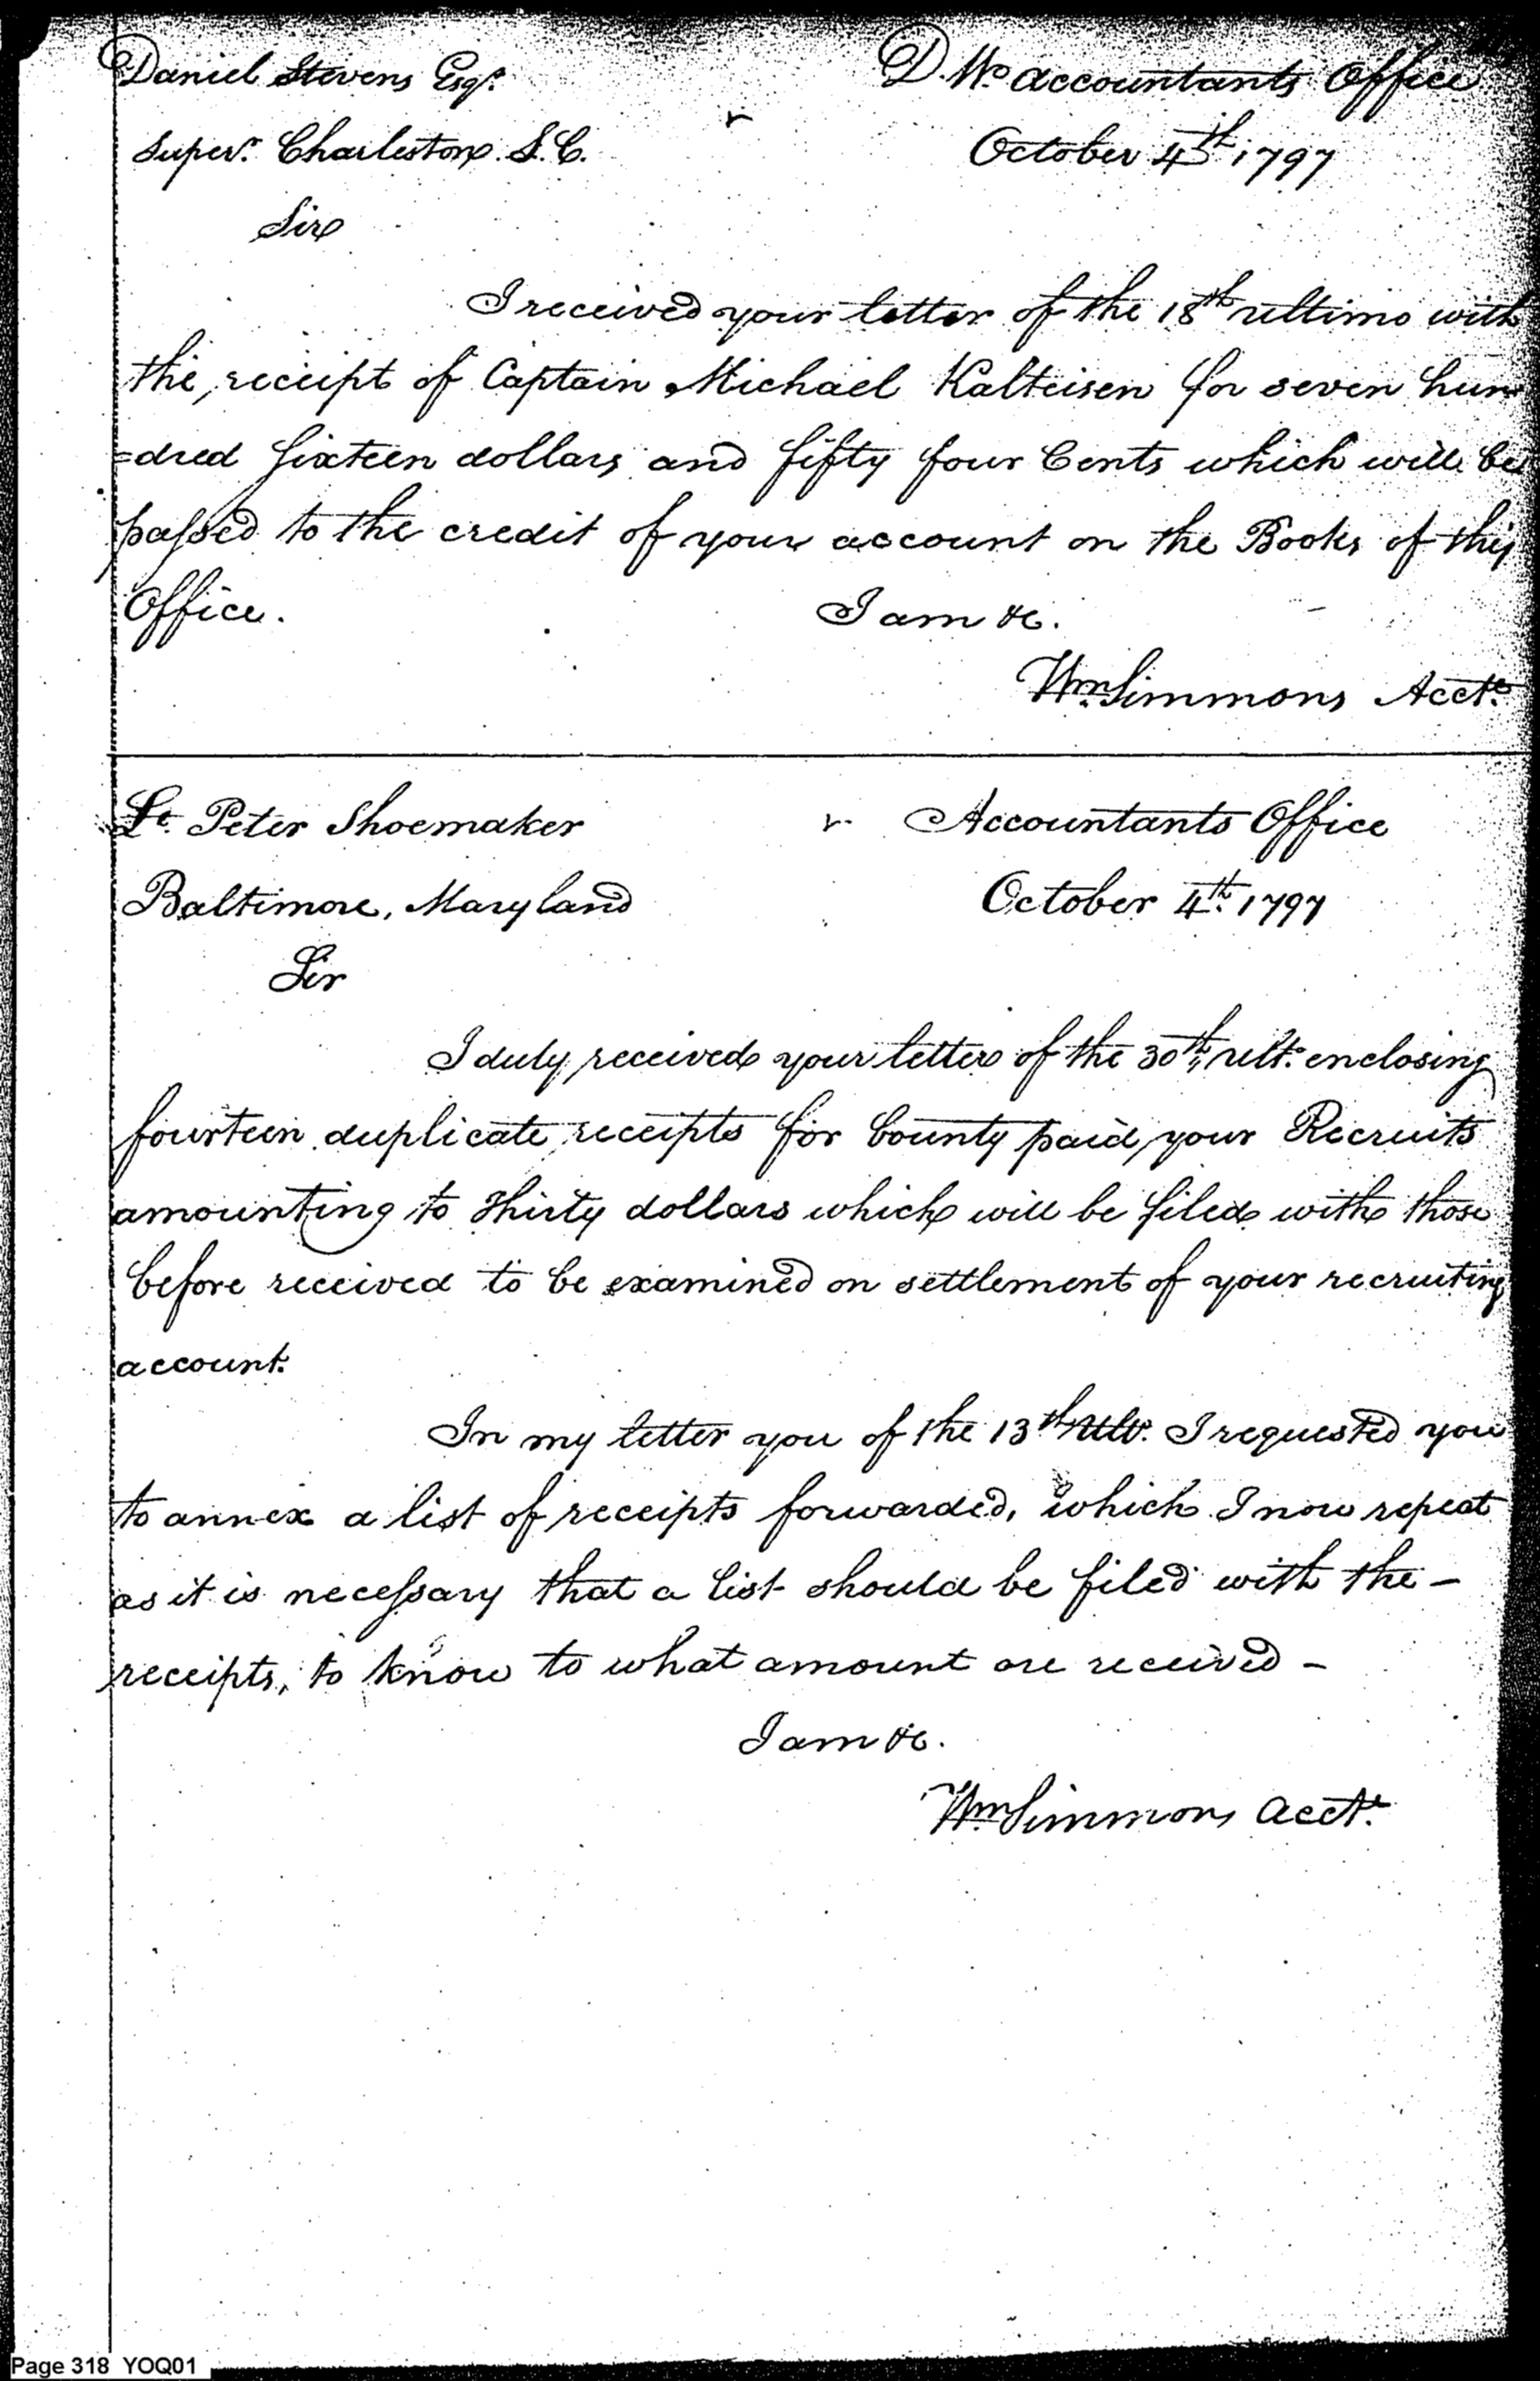 Daniel Stevens Esqr. D. Wr. Accountants Office
Superr. Charleston. S.C. October 4th 1797
Sir
I received your letter of the 18th ultimo with
the receipt of Captain Michael Kalteisen for seven hun
=dred sixteen dollars and fifty four Cents which will be
passed to the credit of your account on the Books of this
Office. I am &c.
Wm. Simmons Acctt.
Lt. Peter Shoemaker Accountants Office
Baltimore, Maryland October 4th. 1797
Sir
I duly received your letter of the 30th, ult. enclosing
fourteen duplicate receipts for bounty paid your Recruits
amounting to thirty dollars which will be filed with those
before received to be examined on settlement of your recruiting
account.
In my letter you of the 13th Ulto. I requested you
to annex a list of receipts forwarded, which I now repeat
as it is necessary that a list should be filed with the -
receipts, to know to what amount are received -
I am &c.
Wm. Simmons acctt.
Page 318 YOQ01